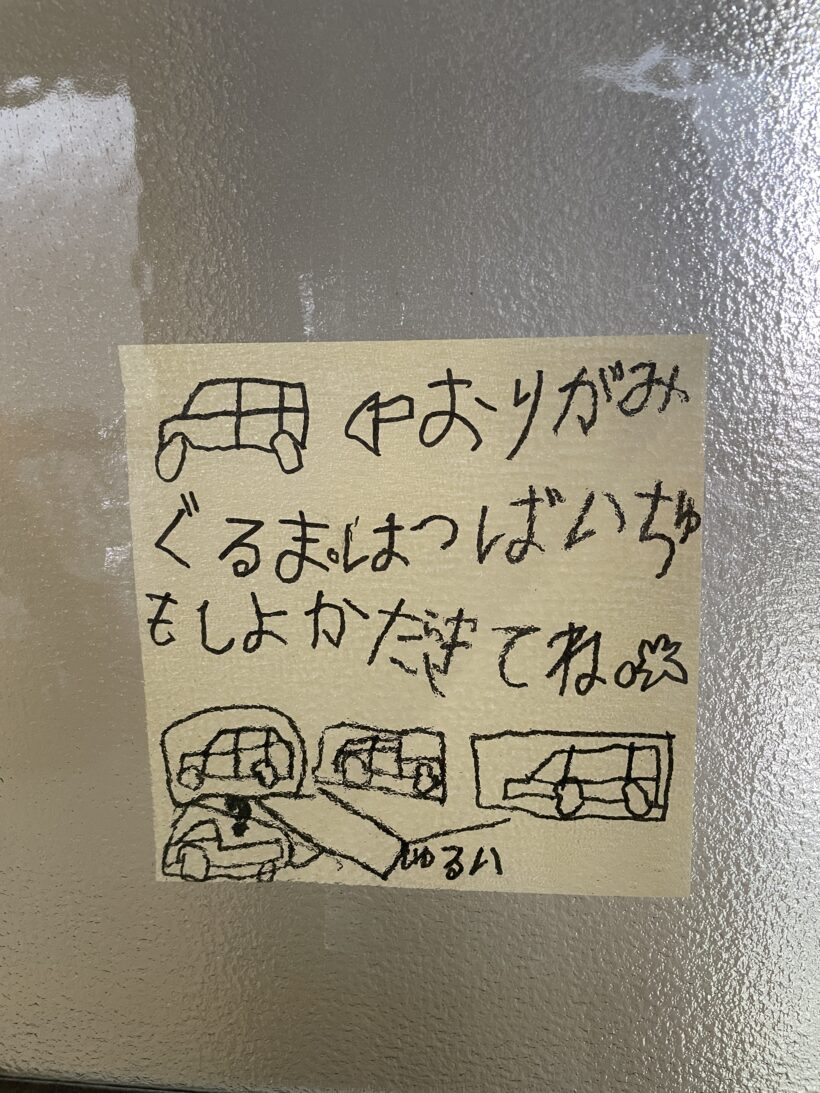 おりがみ
ぐるま。はつばいちゅ
もしよかだらきてね。
しゅるい